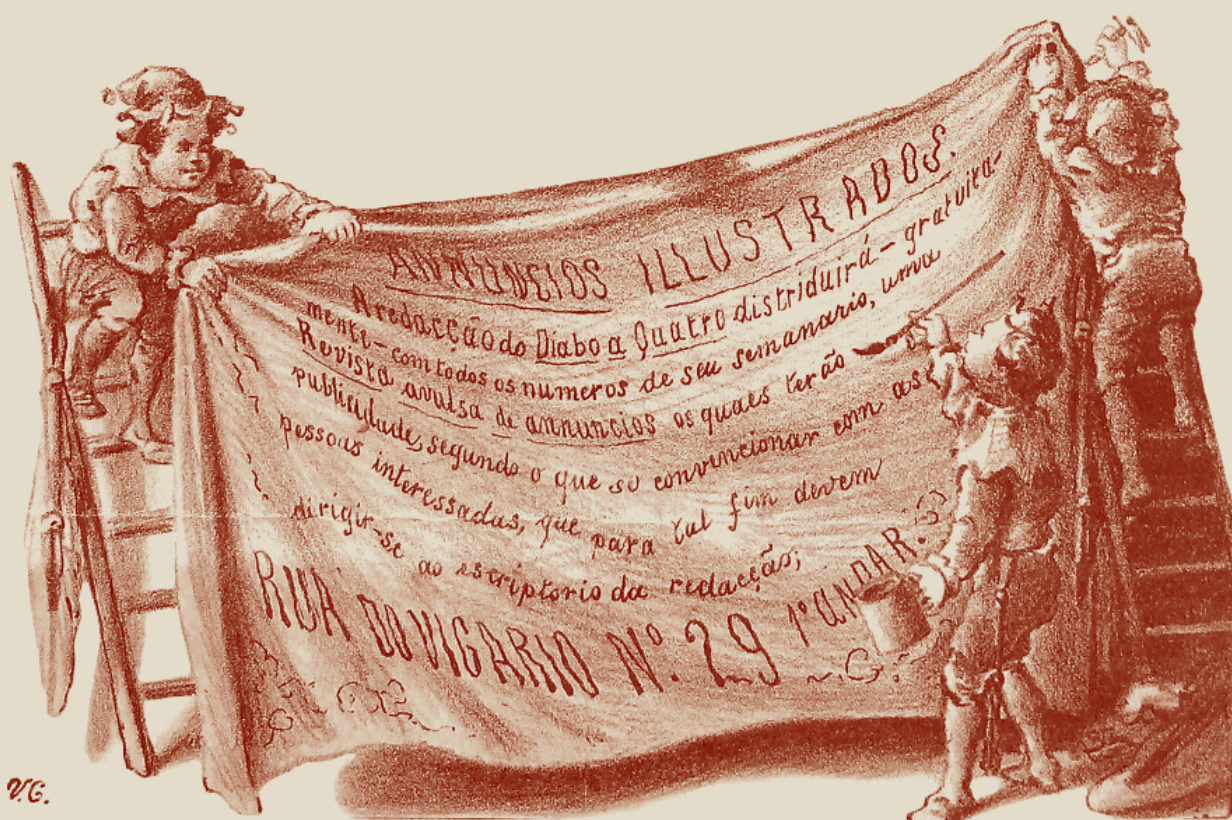 ANNUNCIOS ILLUSTRADOS.
A redacção do Diabo a Quatro distriduirá – gratuita-
mente – com todos os numeros de seu semanario, uma
Revista avulsa de annuncios os quaes terão
publicidade, segundo o que se convencionar com as
pessoas interessadas, que para tal fim devem
dirigir-se ao escriptorio da redacção;
RUA DO VIGARIO Nº. 29 1º ANDAR.
V.G.